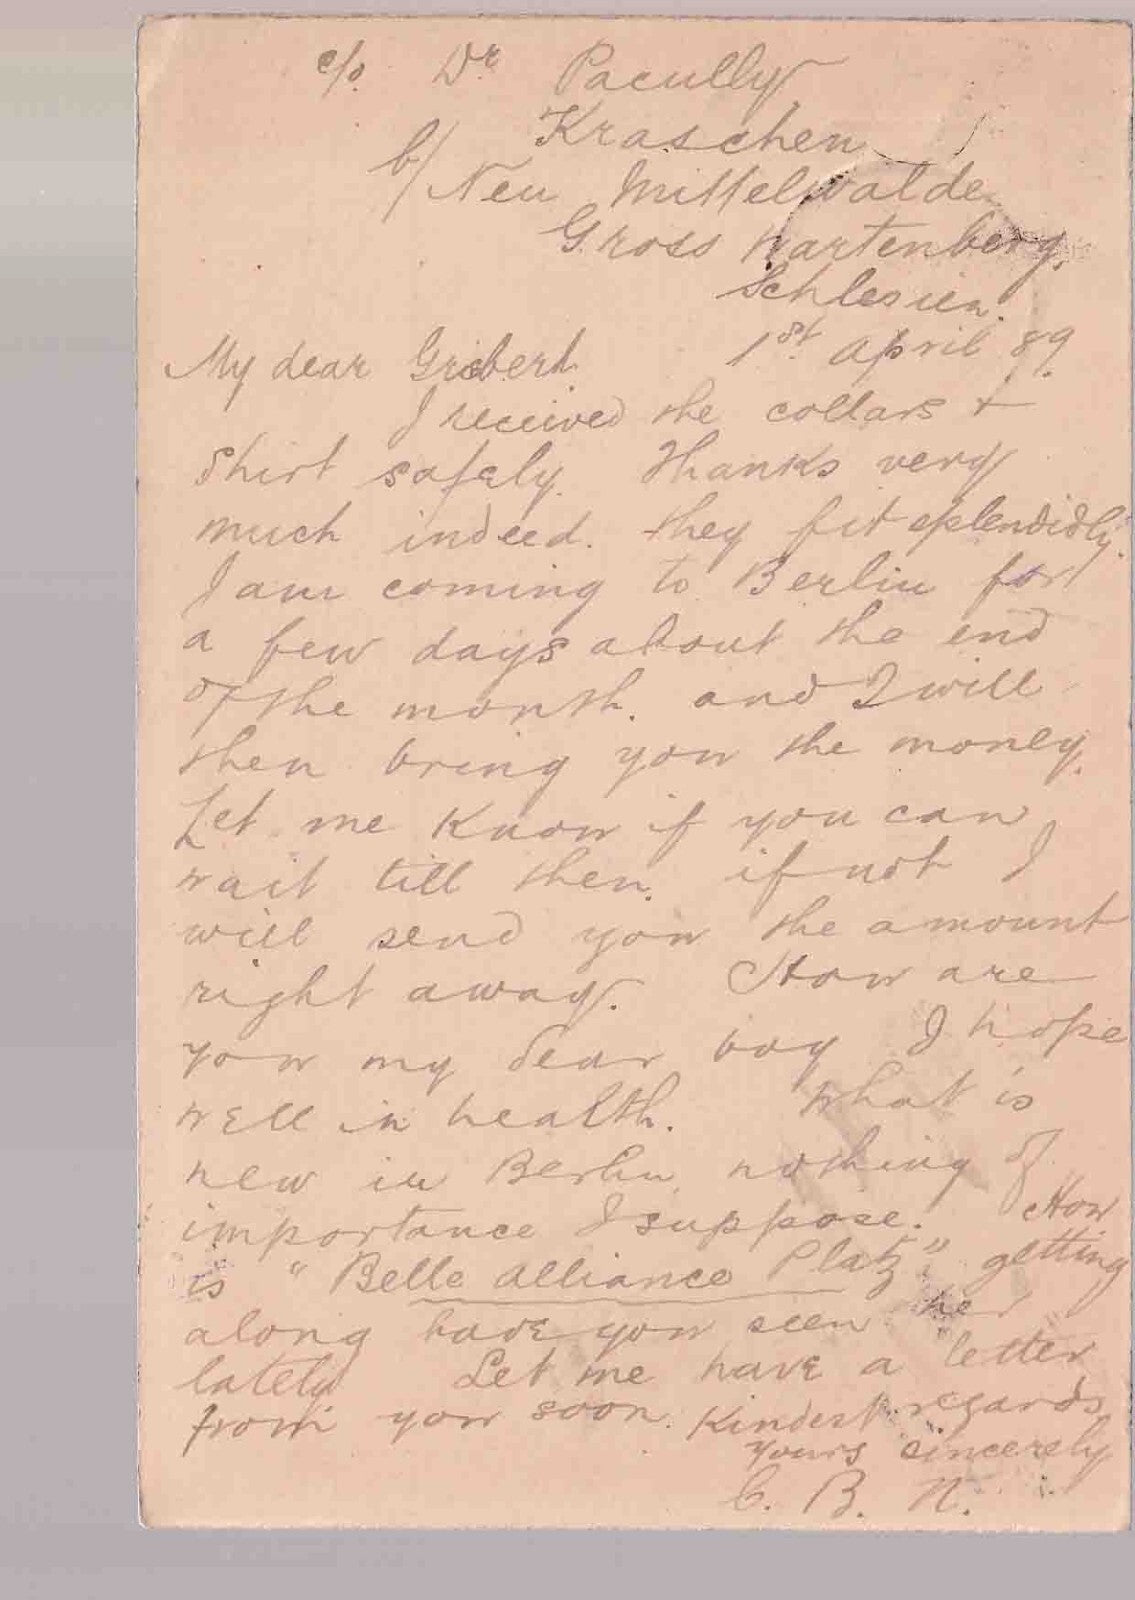 c/o. Dr Pacully
Kraschen
b/ Neu Mittelwalde
Gross Wartenberg.
Schlesien.
1st April 89.
My dear
I received the collars &
shirt safely. Thanks very
much indeed. they fit splendidly.
I am coming to Berlin for
a few days about the end
of the month. and I will
then bring you the money.
Let me know if you can
wait till then. if not I
will send you the amount
right away. How are
you my dear boy I hope
well in health. What is
new in Berlin, nothing of
importance I suppose. How
is "Belle Alliance Platz", getting
along have you seen her
lately Let me have a letter
from you soon. Kindest regards
Yours sincerely
C. B. N.